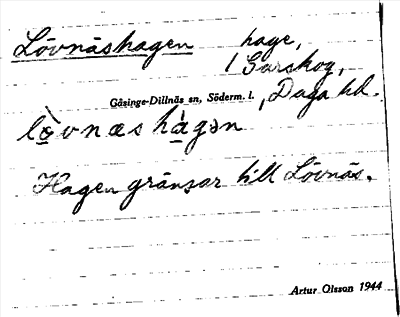 Lövnäshagen hage,
/ Garskog,
Gåsinge-Dillnäs sn, Söderm. l., Daga hd.
lö̀vnæs hàgən
Hagen gränsar till Lövnäs.
Artur Olsson 1944